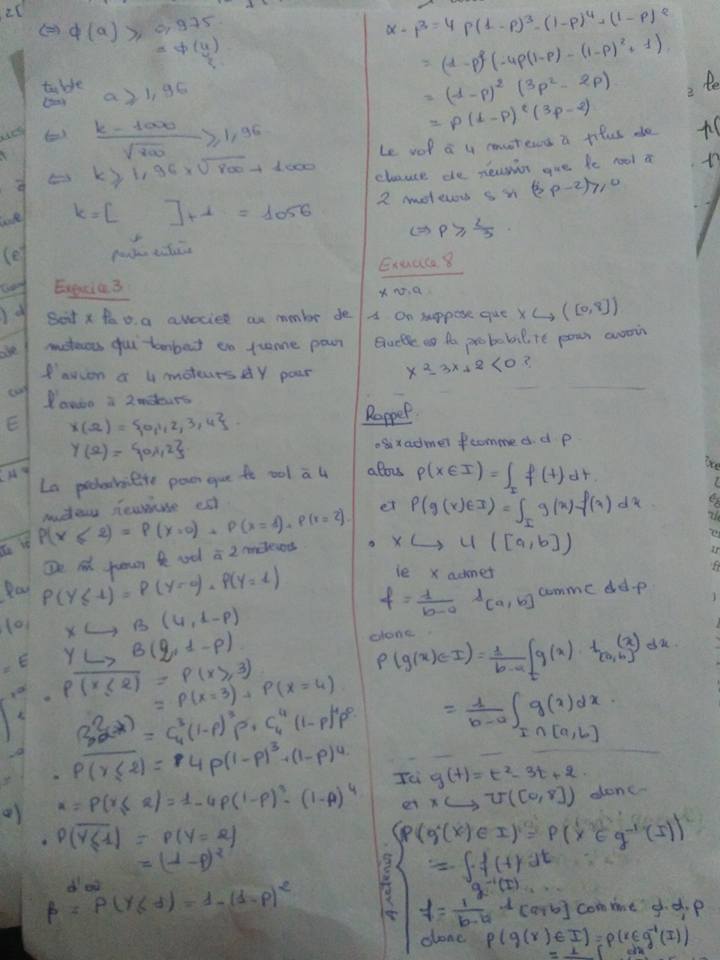 ⇔ ϕ(a) ≥ 0,975
= ϕ(u)
table
⇔ a ≥ 1,96
⇔ k - 1000 / √800 ≥ 1,96
⇔ k ≥ 1,96 × √800 + 1000
k = [ ] + 1 = 1056
partie entière
Exercice 3
Soit x la v.a associer au nmbr de
moteurs qui tombait en panne pour
l'avion à 4 moteurs et Y pour
l'avion à 2 moteurs
X(Ω) = {0,1,2,3,4}
Y(Ω) = {0,1,2}
La probabilité pour que le vol à 4
moteurs réussisse est
P(X ≤ 2) = P(X=0) + P(X=1) + P(X=2)
De m̂ pour le vol à 2 moteurs
P(Y ≤ 1) = P(Y=0) + P(Y=1)
X ↪ B (4, 1-p)
Y ↪ B(2, 1-p)
• P(X ≤ 2) = P(X ≥ 3)
= P(X=3) + P(X=4)
= C₄³ (1-p)³ p + C₄⁴ (1-p)⁴ p⁰
• P(X ≤ 2) = 4p(1-p)³ + (1-p)⁴
α = P(X ≤ 2) = 1 - 4p(1-p)³ - (1-p)⁴
• P(Y ≤ 1) = P(Y = 2)
= (1-p)²
d'où
β = P(Y ≤ 1) = 1 - (1-p)²
α - β = 4p(1-p)³ - (1-p)⁴ + (1-p)²
= (1-p)² (-4p(1-p) - (1-p)² + 1)
= (1-p)² (3p² - 2p)
= p(1-p)² (3p-2)
Le vol à 4 moteurs à plus de
chance de réussir que le vol à
2 moteurs ssi (3p-2) ≥ 0
⇔ p ≥ 2/3
Exercice 8
x v.a
1. On suppose que X ↪ ([0,8])
Quelle est la probabilité pour avoir
X² - 3X + 2 < 0 ?
Rappel
• si x admet f comme d.d.p
alors p(x∈I) = ∫_I f(t) dt
et P(g(x)∈I) = ∫_I g(x) f(x) dx
• X ↪ U ([a,b])
ie x admet
f = 1/(b-a) 1_[a,b] comme d.d.p
donc
P(g(x)∈I) = 1/(b-a) ∫_I g(x) · 1_[a,b](x) dx
= 1/(b-a) ∫_{I∩[a,b]} g(x) dx
Ici g(t) = t² - 3t + 2
et X ↪ U([0,8]) donc
P(g(X) ∈ I) = P(X ∈ g⁻¹(I))
= ∫_{g⁻¹(I)} f(t) dt
A retenir
f = 1/(b-a) 1[a,b] comme d.d.p
donc P(g(x)∈I) = p(x∈g⁻¹(I))